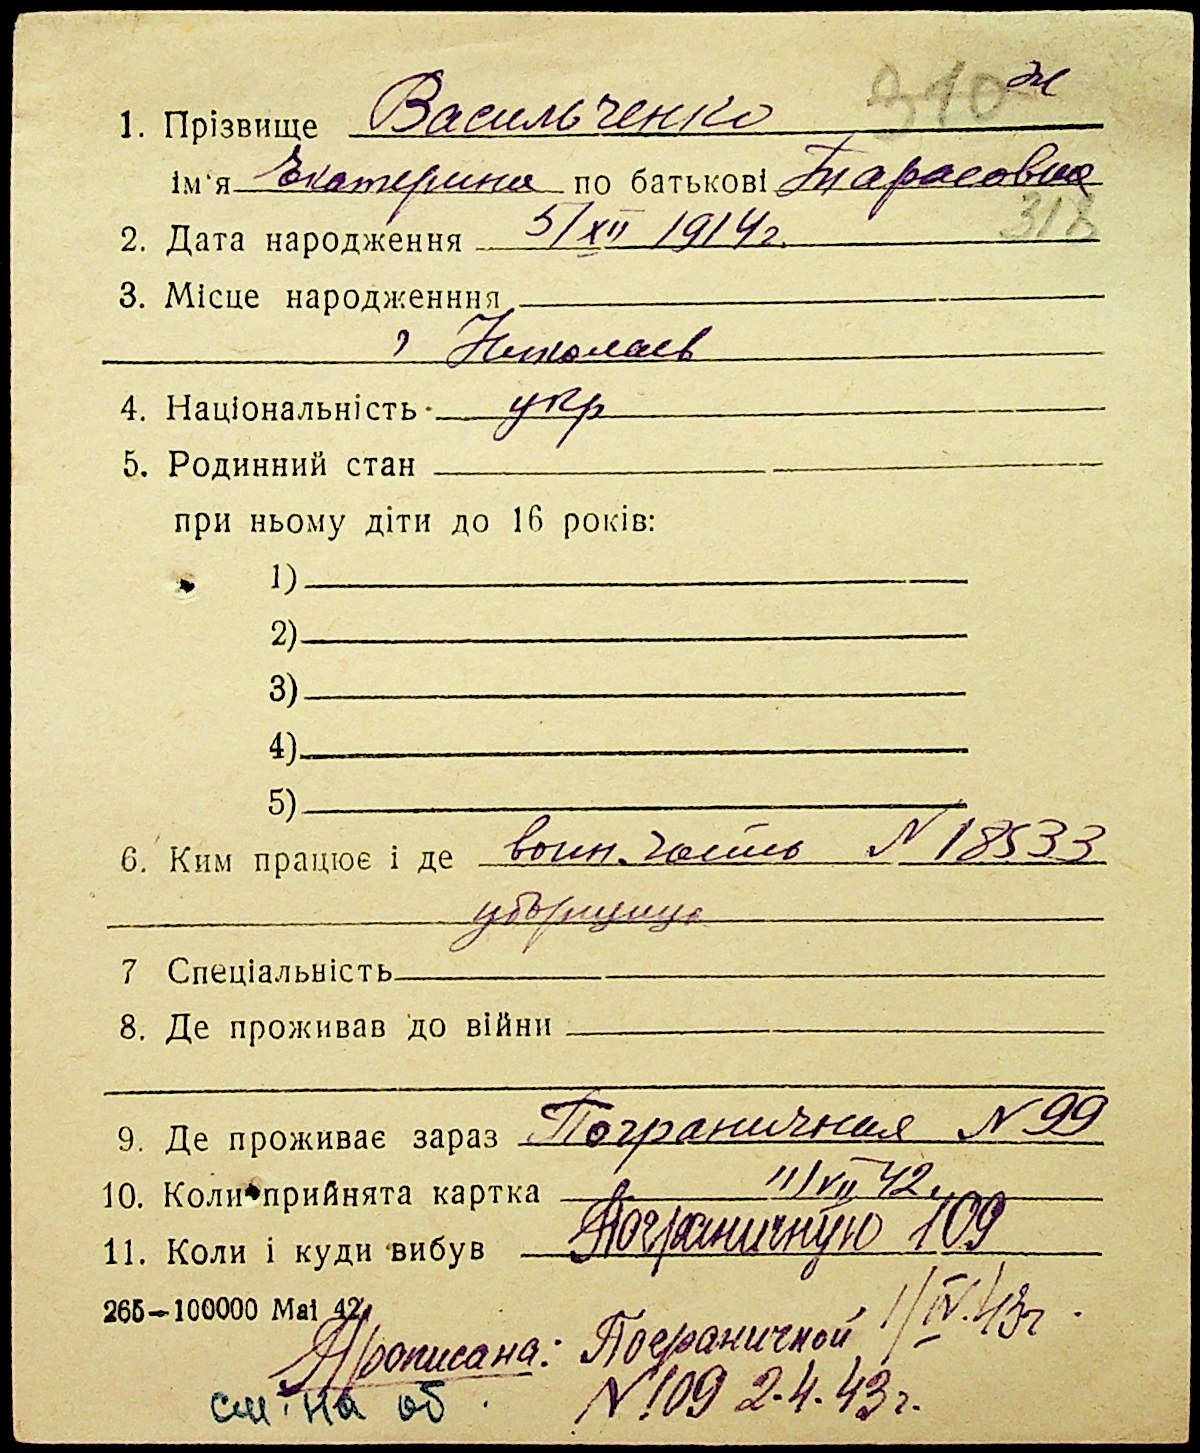 310
1. Прізвище Васильченко
ім'я Екатерина по батькові Тарасовна
318
2. Дата народження 5/XII 1914г.
3. Місце народженння
Николаев
4. Національність укр
5. Родинний стан
при ньому діти до 16 років:
1)
2)
3)
4)
5)
6. Ким працює і де воин. часть N 18533
уборщица
7 Спеціальність
8. Де проживав до війни
9. Де проживає зараз Пограничная N 99
10. Коли прийнята картка 11/VII 42.
11. Коли і куди вибув Пограничную 109
265—100000 Маі 42. 1/IV.43г.
Прописана: Пограничной
N 109 2.4.43г.
см. на об.